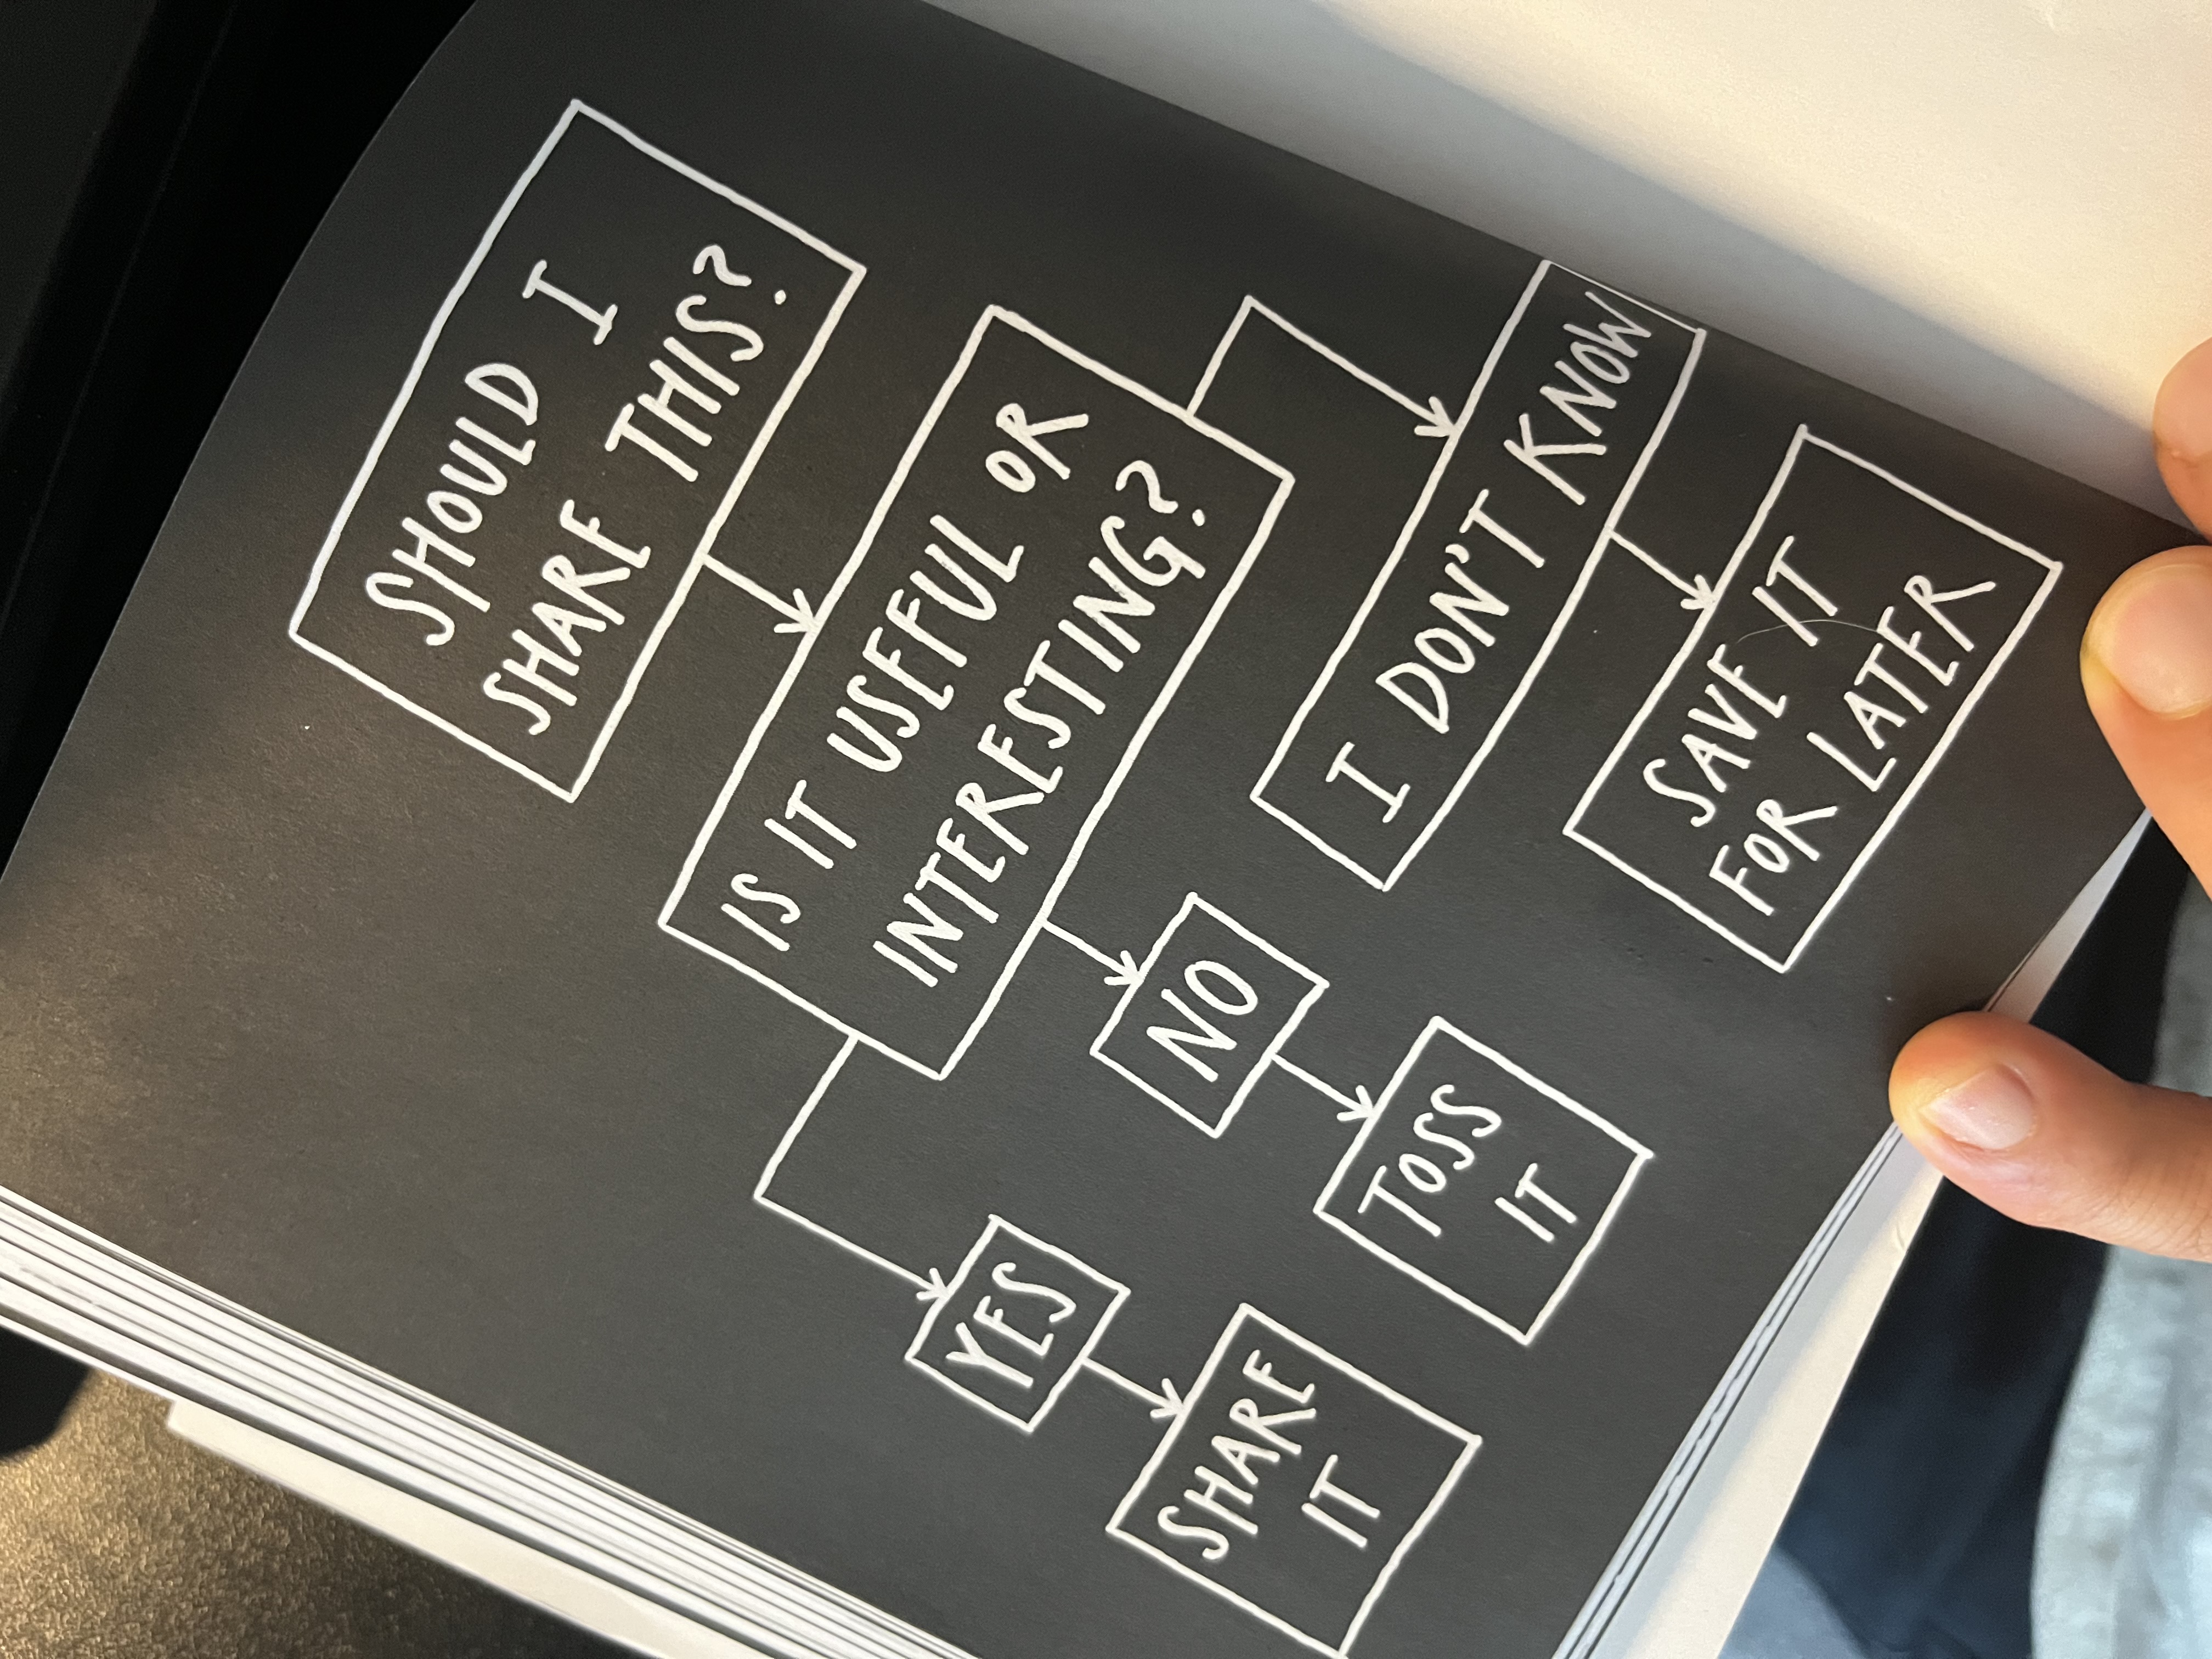 SHOULD I
SHARE THIS?
IS IT USEFUL OR
INTERESTING?
YES
SHARE
IT
NO
TOSS
IT
I DON'T KNOW
SAVE IT
FOR LATER